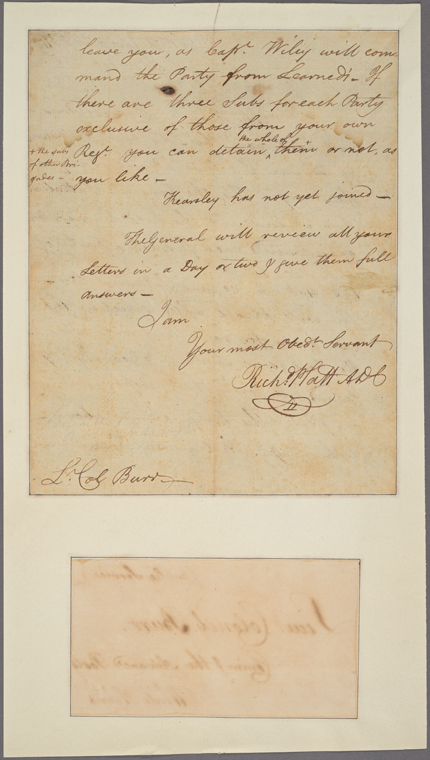 leave you, as Capt. Wiley will com
mand the Party from Learned's - If
there are three Subs for each Party
exclusive of those from your own
Regt. you can detain the whole of them or not, as
+ the subs
of other Bri
gades -
you like -
Kearsley has not yet joined -
The General will review all your
Letters in a Day or two & give them full
answers -
I am
Your most Obedt. Servant
Richd. Platt ADC
Lt. Col Burr
Lieut. Colonel Burr,